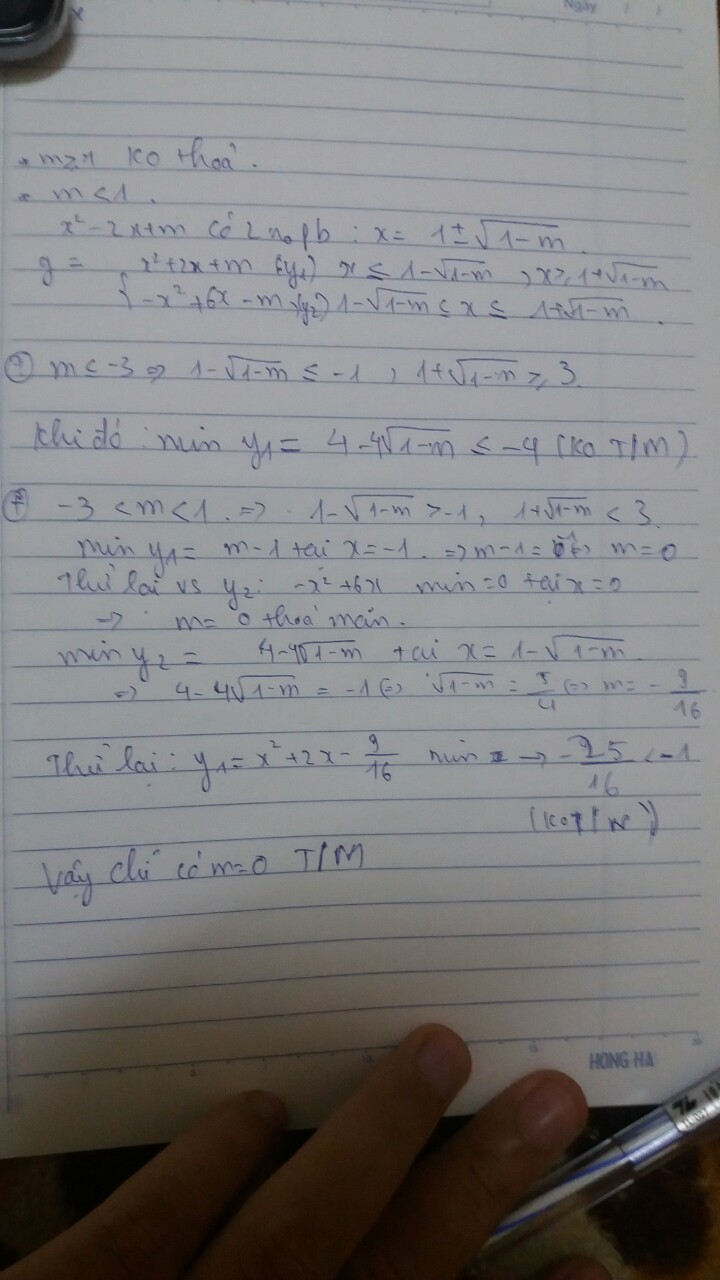 Ngày
* m≥1 ko thoả.
* m<1.
x²-2x+m có 2 n₀ pb : x = 1±√(1-m)
y = x²+2x+m (y₁) x ≤ 1-√(1-m) , x ≥ 1+√(1-m)
{ -x²+6x-m (y₂) 1-√(1-m) ≤ x ≤ 1+√(1-m).
m ≤ -3 => 1-√(1-m) ≤ -1 , 1+√(1-m) ≥ 3.
Khi đó : min y₁ = 4-4√(1-m) ≤ -4 (ko T/M)
+ -3 < m < 1. => 1-√(1-m) > -1, 1+√(1-m) < 3.
min y₁ = m-1 tại x=-1. => m-1 = -1 <=> m=0
Thử lại vs y₂: -x²+6x min=0 tại x=0
=> m=0 thoả mãn.
min y₂ = 4-4√(1-m) tại x = 1-√(1-m)
=> 4-4√(1-m) = -1 <=> √(1-m) = 5/4 <=> m = -9/16
Thử lại : y₁ = x²+2x-9/16 min → -25/16 < -1
(ko T/M)
Vậy chỉ có m=0 T/M
HONG HA